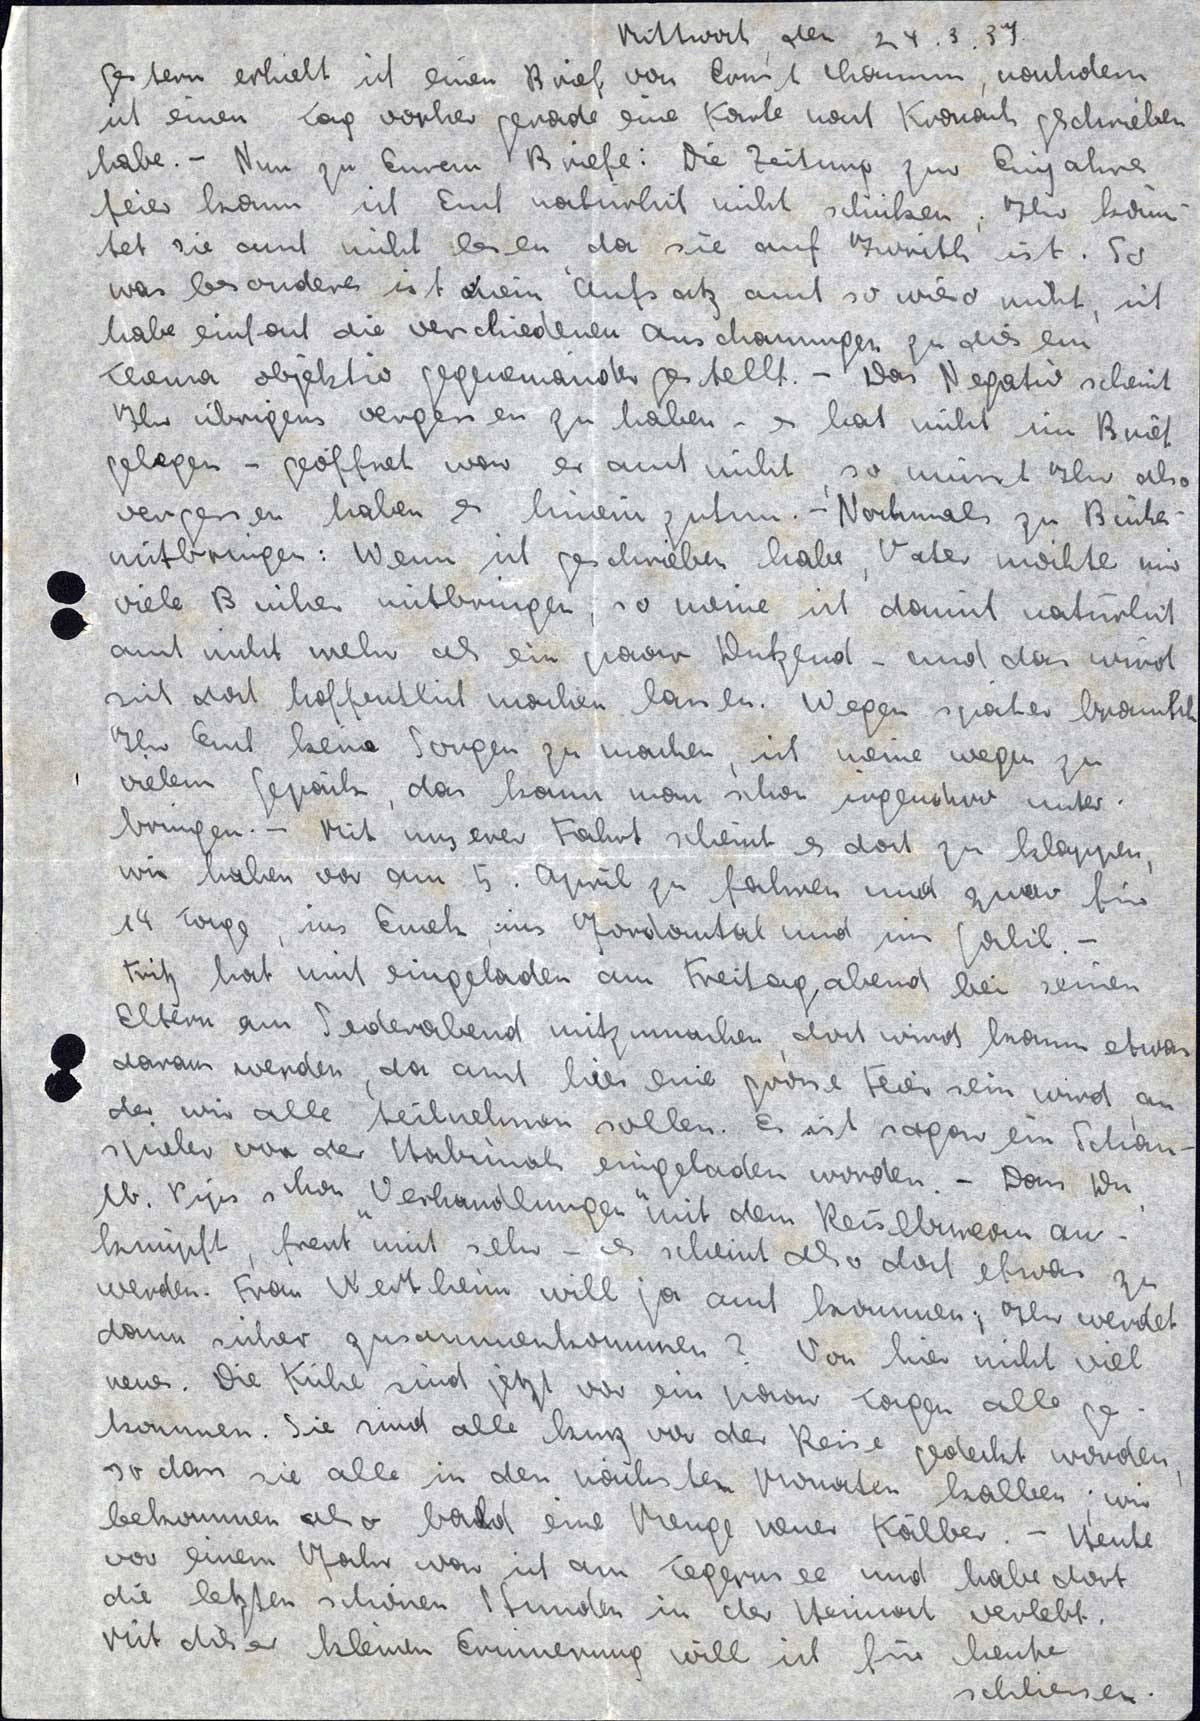 Mittwoch, den 24.3.37.
Gestern erhielt ich einen Brief von Ernst Thamm, nachdem
ich einen Tag vorher gerade eine Karte nach Kronach geschrieben
habe. - Nun zu Eurem Briefe: Die Zeitung zur Einjahres
feier kann ich Euch natürlich nicht schicken, Ihr könn-
tet sie auch nicht lesen, da sie auf Iwrith ist. So
was besonderes ist mein Aufsatz auch so wieso nicht, ich
habe einfach die verschiedenen Anschauungen zu diesem
Thema objektiv gegeneinander gestellt. - Das Negativ scheint
Ihr übrigens vergessen zu haben - es hat nicht im Brief
gelegen - geöffnet war er auch nicht, so müsst Ihr also
vergessen haben es hineinzutun. - Nochmals zu Bücher-
mitbringen: Wenn ich geschrieben habe, Vater möchte mir
viele Bücher mitbringen, so meine ich damit natürlich
auch nicht mehr als ein paar Dutzend - und das wird
sich doch hoffentlich machen lassen. Wegen später braucht
Ihr Euch keine Sorgen zu machen, ich meine wegen zu
vielem Gepäck, das kann man schon irgendwo unter-
bringen. - Mit unserer Fahrt scheint es doch zu klappen,
wir haben vor am 5. April zu fahren und zwar für
14 Tage, ins Emek, ins Jordantal und im Galil. -
Fritz hat mich eingeladen am Freitag abend bei seinen
Eltern am Sederabend mitzumachen, doch wird kaum etwas
daraus werden, da auch hier eine grosse Feier sein wird, an
der wir alle teilnehmen sollen. Es ist sogar ein Schau-
spieler von der Habimah eingeladen worden. - Dass Du
lb. schon „Verhandlungen" mit dem Reisebureau an-
knüpft, freut mich sehr - es scheint also doch etwas zu
werden. Frau Wertheim will ja auch kommen; Ihr werdet
dann sicher zusammenkommen? Von hier nicht viel
neues. Die Kühe sind jetzt vor ein paar Tagen alle ge-
kommen. Sie sind alle kurz vor der Reise gedeckt worden,
so dass sie alle in den nächsten Monaten kalben; wir
bekommen also bald eine Menge neuer Kälber. - Heute
vor einem Jahr war ich am Tegernsee und habe dort
die letzten schönen Stunden in der Heimat verlebt.
Mit dieser kleinen Erinnerung will ich für heute
schliessen.